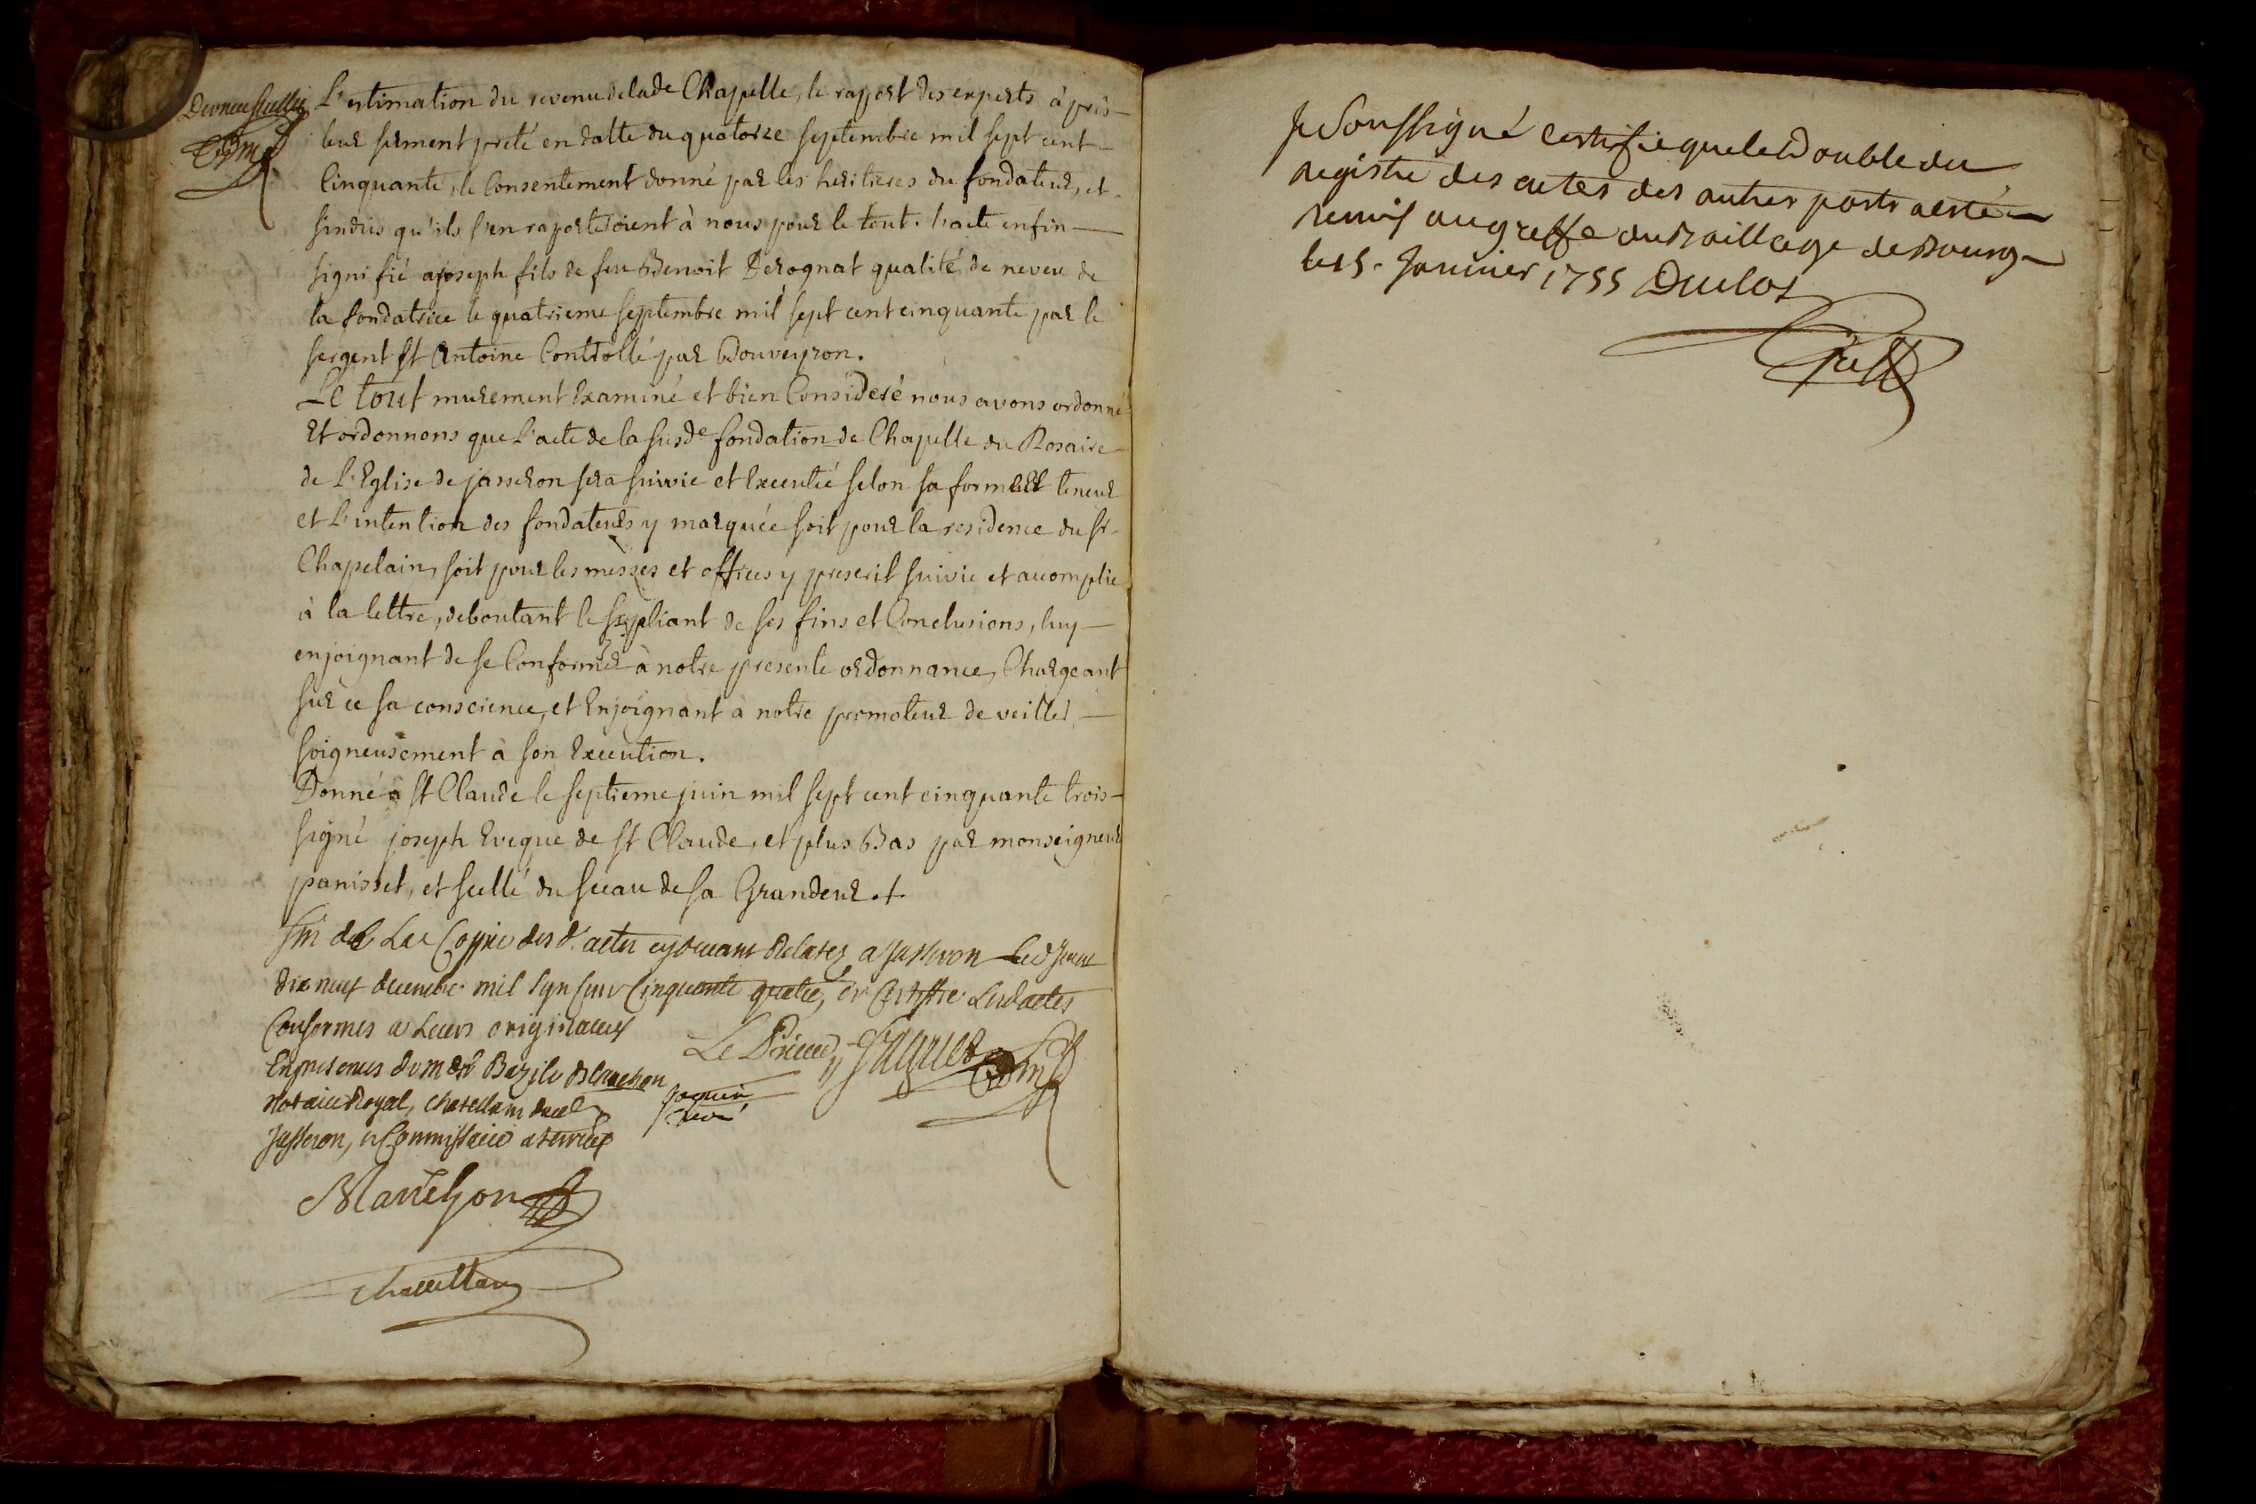 L'estimation du revenu de lade Chapelle, le raport des experts àprès
leur serment preté en datte du quatorze septembre mil sept cent
Cinquante, le Consentement donné par les heritieres du fondateur, et
sindics qu'ils s'en raporteroient à nous pour le tout. l'acte enfin
signifié a joseph fils de feu Benoit Derognat qualité de neveu de
la fondatrice le quatrieme septembre mil sept cent cinquante par le
sergent St Antoine Controllé par Douveyron.
Le tout murement Examiné et bien Consideré nous avons ordonné
Et ordonnons que L'acte de la susde fondation de Chapelle du Rosaire
de L'Eglise de jasseron sera suivie et Executée selon sa forme et teneur
et L'intention des fondateurs y marquée soit pour la residence du sr
Chapelain, soit pour les messes et offices y prescrit suivie et acomplie
à la lettre, deboutant le supliant de ses fins et Conclusions, luy
enjoignant de se Conformer à notre presente ordonnance, Chargeant
sur ce sa conscience, et Enjoignant à notre promoteur de veiller
soigneusement à son Execution.
Donné à St Claude le septieme juin mil sept cent cinquante trois
signé joseph Eveque de St Claude, et plus Bas par monseigneur
panisset, et scellé du sceau de sa Grandeur .+.
fin de La Coppie des d. actes cydevant a Jasseron
dix neuf decembre mil sept cent Cinquante quatre, et Certiffie Lesd actes
Conformes a Leurs originaux
En presences de
notaire Royal, chatellain
Jasseron, et Commissaire a terrier
Le Prieur Jaquier
Marechon
chatellain
Je Soussigné certifie que le Double du
registre des actes des autres parts a esté
remis au greffe du Baillage de Bourg
le 15. Janvier 1755 Duclos